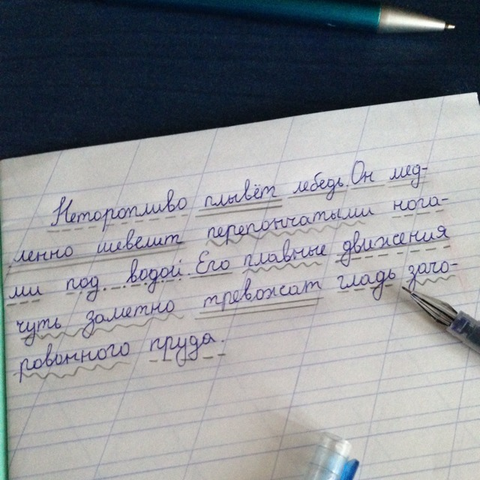 Неторопливо плывёт лебедь. Он мед-
ленно шевелит перепончатыми нога-
ми под водой. Его плавные движения
чуть заметно тревожат гладь зача-
рованного пруда.